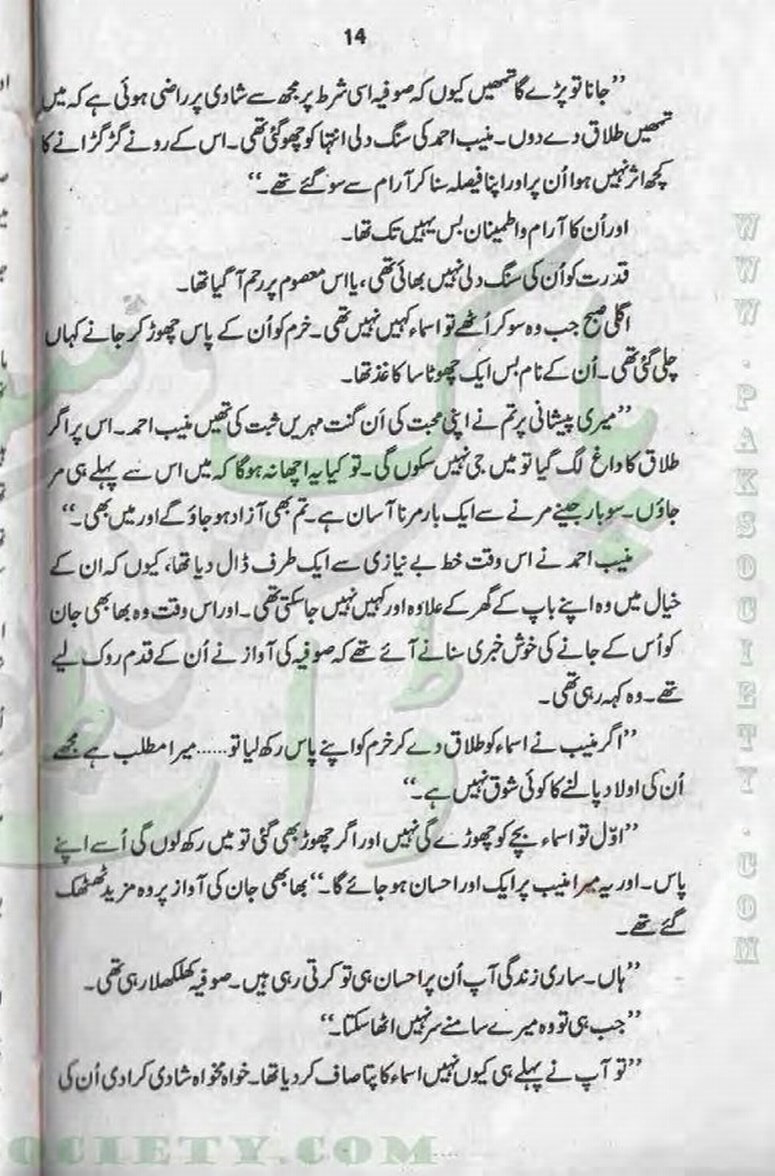 14
”جانا تو پڑے گا تمھیں کیوں کہ صوفیہ اسی شرط پر مجھ سے شادی پر راضی ہوئی ہے کہ میں
تمھیں طلاق دے دوں۔ منیب احمد کی سنگ دلی انتہا کو چھو گئی تھی۔ اس کے رونے گڑگڑانے کا
کچھ اثر نہیں ہوا اُن پر اور اپنا فیصلہ سنا کر آرام سے سو گئے تھے۔“
اور اُن کا آرام و اطمینان بس یہیں تک تھا۔
قدرت کو اُن کی سنگ دلی نہیں بھائی تھی، یا اس معصوم پر رحم آ گیا تھا۔
اگلی صبح جب وہ سو کر اُٹھے تو اسماء کہیں نہیں تھی۔ خرم کو اُن کے پاس چھوڑ کر جانے کہاں
چلی گئی تھی۔ اُن کے نام بس ایک چھوٹا سا کاغذ تھا۔
”میری پیشانی پر تم نے اپنی محبت کی اَن گنت مہریں ثبت کی تھیں منیب احمد۔ اس پر اگر
طلاق کا داغ لگ گیا تو میں جی نہیں سکوں گی۔ تو کیا یہ اچھا نہ ہوگا کہ میں اس سے پہلے ہی مر
جاؤں۔ سو بار جینے مرنے سے ایک بار مرنا آسان ہے۔ تم بھی آزاد ہو جاؤ گے اور میں بھی۔“
منیب احمد نے اس وقت خط بے نیازی سے ایک طرف ڈال دیا تھا، کیوں کہ ان کے
خیال میں وہ اپنے باپ کے گھر کے علاوہ اور کہیں نہیں جا سکتی تھی۔ اور اس وقت وہ بھابھی جان
کو اُس کے جانے کی خوش خبری سنانے آئے تھے کہ صوفیہ کی آواز نے اُن کے قدم روک لیے
تھے۔ وہ کہہ رہی تھی۔
”اگر منیب نے اسماء کو طلاق دے کر خرم کو اپنے پاس رکھ لیا تو...... میرا مطلب ہے مجھے
اُن کی اولاد پالنے کا کوئی شوق نہیں ہے۔“
”اوّل تو اسماء بچے کو چھوڑے گی نہیں اور اگر چھوڑ بھی گئی تو میں رکھ لوں گی اُسے اپنے
پاس۔ اور یہ میرا منیب پر ایک اور احسان ہو جائے گا۔“ بھابھی جان کی آواز پر وہ مزید ٹھٹھک
گئے تھے۔
”ہاں۔ ساری زندگی آپ اُن پر احسان ہی تو کرتی رہی ہیں۔ صوفیہ کھلکھلا رہی تھی۔
”جب ہی تو وہ میرے سامنے سر نہیں اٹھا سکتا۔“
”تو آپ نے پہلے ہی کیوں نہیں اسماء کا پتا صاف کر دیا تھا۔ خواہ مخواہ شادی کرا دی اُن کی
WWW.PAKSOCIETY.COM
OCIETY.COM